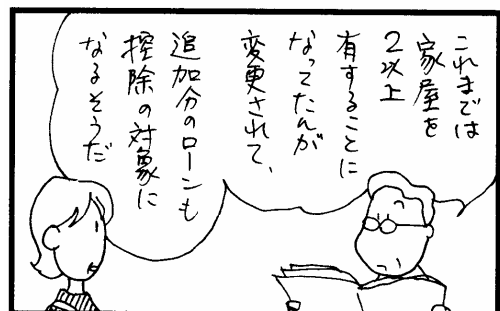 これまでは
家屋を
２以上
有することに
なってたんが
変更されて、
追加分のローンも
控除の対象に
なるそうだ